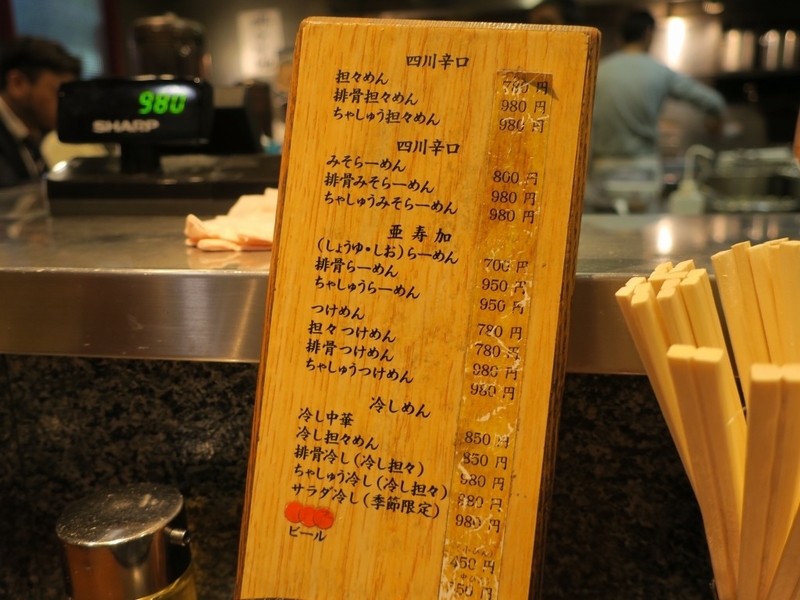 980
SHARP
四川辛口
担々めん 780円
排骨担々めん 980円
ちゃしゅう担々めん 980円
四川辛口
みそらーめん 800円
排骨みそらーめん 980円
ちゃしゅうみそらーめん 980円
亜寿加
(しょうゆ・しお)らーめん 700円
排骨らーめん 950円
ちゃしゅうらーめん 950円
つけめん 780円
担々つけめん 780円
排骨つけめん 980円
ちゃしゅうつけめん 980円
冷しめん
冷し中華 850円
冷し担々めん 850円
排骨冷し(冷し担々) 980円
ちゃしゅう冷し(冷し担々) 980円
サラダ冷し(季節限定) 980円
ビール
450円